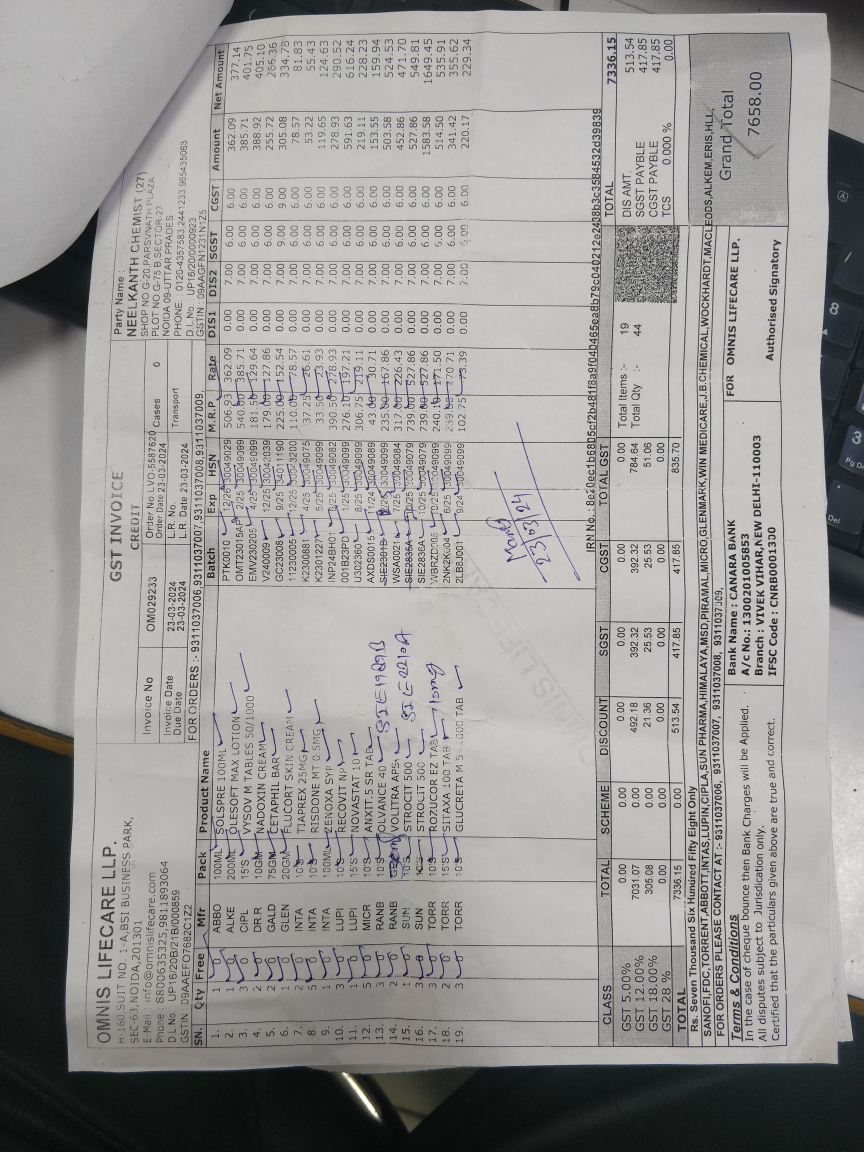 GST INVOICE
CREDIT
OMNIS LIFECARE LLP.
H-160,SUIT NO. 1-A,BSI BUSINESS PARK,
SEC-63,NOIDA,201301
E-Mail : info@omnislifecare.com
Phone : 8800635325,9811893064
D.L.No. UP16/20B/21B/000859
GSTIN :09AAEFO7682C1Z2
Invoice No OM029233
Invoice Date 23-03-2024
Due Date 23-03-2024
Order No LVO-5587620
Order Date 23-03-2024
L.R. No.
L.R. Date 23-03-2024
Cases 0
Transport
Party Name :
NEELKANTH CHEMIST (27)
SHOP NO G-20,PARSVNATH PLAZA
PLOT NO G-75 B,SECTOR-27
NOIDA 09-UTTAR PRADES
PHONE : 0120-4357583,2441233,965435063
D.L.No. UP16/20/0000923
GSTIN : 09AAGFN1231N1Z5
FOR ORDERS :- 9311037006,9311037007,9311037008,9311037009,
SN. Qty Free Mfr Pack Product Name Batch Exp HSN M.R.P Rate DIS1 DIS2 SGST CGST Amount Net Amount
1. 1 0 ABBO 100ML SOLSPRE 100ML PTK0010 12/25 30049029 506.93 362.09 0.00 7.00 6.00 6.00 362.09 377.14
2. 1 0 ALKE 200ML OLESOFT MAX LOTION 30049099 540.00 385.71 0.00 7.00 6.00 6.00 385.71 401.75
3. 3 0 CIPL 15'S VYSOV M TABLES 50/1000 EMV230205 4/25 30049099 181.50 129.64 0.00 7.00 6.00 6.00 388.92 405.10
4. 2 0 DR.R 10GM NADOXIN CREAM V240009 12/25 30042039 179.00 127.86 0.00 7.00 6.00 6.00 255.72 266.36
5. 2 0 GALD 75GM CETAPHIL BAR GC23008 9/25 34011190 225.00 152.54 0.00 7.00 9.00 9.00 305.08 334.78
6. 1 0 GLEN 20GM FLUCORT SKIN CREAM 11230005 12/25 110.00 78.57 0.00 7.00 6.00 6.00 78.57 81.83
7. 2 0 INTA 10'S TIAPREX 25MG K2300881 4/25 30049075 37.25 26.61 0.00 7.00 6.00 6.00 53.22 55.43
8. 5 0 INTA 10'S RISDONE MT 0.5MG K2301227 5/25 30049099 33.50 23.93 0.00 7.00 6.00 6.00 119.65 124.63
9. 1 0 INTA 100ML ZENOXA SYP INP24BH01 30049082 390.50 278.93 0.00 7.00 6.00 6.00 278.93 290.52
10. 3 0 LUPI 10'S RECOVIT NP 001B23PD 1/25 30049099 276.10 197.21 0.00 7.00 6.00 6.00 591.63 616.24
11. 1 0 LUPI 15'S NOVASTAT 10 U302360 8/25 30049099 306.75 219.11 0.00 7.00 6.00 6.00 219.11 228.23
12. 5 0 MICR 10'S ANXIT.5 SR TAB AXDS0015 11/24 30049089 43.00 30.71 0.00 7.00 6.00 6.00 153.55 159.94
13. 3 0 RANB 10'S OLVANCE 40 SIE1929B SIE2301B 30049099 235.00 167.86 0.00 7.00 6.00 6.00 503.58 524.53
14. 2 0 RANB VOLITRA APS WSA0021 7/25 30049084 317.00 226.43 0.00 7.00 6.00 6.00 452.86 471.70
15. 1 0 SUN 10'S STROCIT 500 SIE2210A SIE2835A 10/25 30049079 739.00 527.86 0.00 7.00 6.00 6.00 527.86 549.81
16. 3 0 SUN 10'S STROCIT 500 SIE2835A 10/25 30049079 739.00 527.86 0.00 7.00 6.00 6.00 1583.58 1649.45
17. 3 0 TORR 10'S ROZUCOR EZ TAB 10mg 30049099 240.10 171.50 0.00 7.00 6.00 6.00 514.50 535.91
18. 2 0 TORR 15'S SITAXA 100 TAB 2NK2K004 6/25 30049099 239.00 170.71 0.00 7.00 6.00 6.00 341.42 355.62
19. 3 0 TORR 10'S GLUCRETA M 5 TAB 2LB8J001 9/24 30049099 102.75 73.39 0.00 7.00 6.00 6.00 220.17 229.34
23/03/24
OMNIS LIFECARE
CLASS TOTAL SCHEME DISCOUNT SGST CGST TOTAL GST
GST 5.00% 0.00 0.00 0.00 0.00 0.00 0.00
GST 12.00% 7031.07 0.00 492.18 392.32 392.32 784.64
GST 18.00% 305.08 0.00 21.36 25.53 25.53 51.06
GST 28 % 0.00 0.00 0.00 0.00 0.00 0.00
TOTAL 7336.15 0.00 513.54 417.85 417.85 835.70
Total Items :- 19
Total Qty :- 44
TOTAL 7336.15
DIS AMT. 513.54
SGST PAYBLE 417.85
CGST PAYBLE 417.85
TCS 0.000 % 0.00
Grand Total
7658.00
Rs. Seven Thousand Six Hundred Fifty Eight Only
SANOFI,FDC,TORRENT,ABBOTT,INTAS,LUPIN,CIPLA,SUN PHARMA,HIMALAYA,MSD,PIRAMAL,MICRO,GLENMARK,WIN MEDICARE,J.B.CHEMICAL,WOCKHARDT,MACLEODS,ALKEM,ERIS,HLL,
FOR ORDERS PLEASE CONTACT AT :- 9311037006, 9311037007, 9311037008, 9311037009,
Terms & Conditions
In the case of cheque bounce then Bank Charges will be Applied.
All disputes subject to Jurisdication only.
Certified that the particulars given above are true and correct.
Bank Name : CANARA BANK
A/c No.: 1300201005853
Branch : VIVEK VIHAR,NEW DELHI-110003
IFSC Code : CNRB0001300
FOR OMNIS LIFECARE LLP.
Authorised Signatory